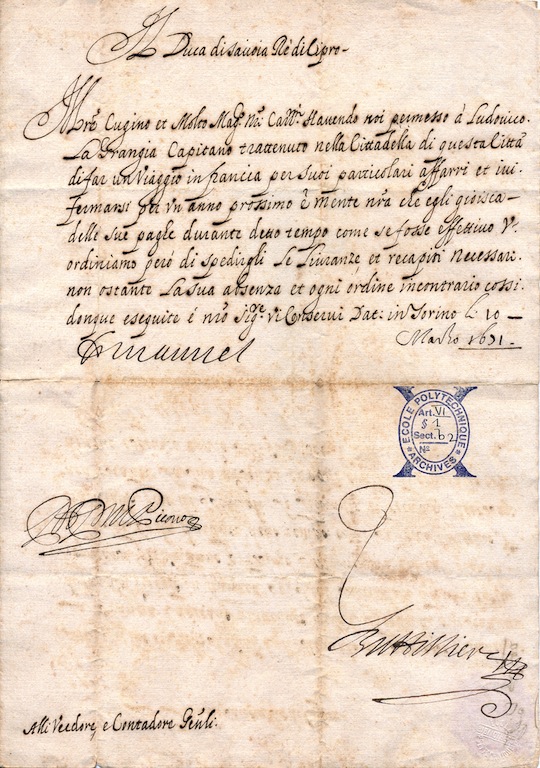 Il Duca di Sauoia Rè di Cipro -
Illre. Cugino et Molto Magco. Nro. Carmo. Hauendo noi permesso à Ludouico.
La Grangia Capitano trattenuto nella Cittadella di questa Città
di far un Viaggio in francia per suoi particolari affarri et iui.
Fermarsi per vn anno prossimo è mente nra che egli gioisca
delle sue paghe durante detto tempo come se fosse effettiuo Vi
ordiniamo però di spedirgli le liuranze et recapiti necessari.
non ostante la sua absenza et ogni ordine incontrario cossi
donque eseguite è nro Sigre. vi Conserui Dat: in Torino li 10 -
Marzo 1691 -
ECOLE POLYTECHNIQUE
Art. VI
§ 1
Sect. b2
No
ARCHIVES
Alli Veedore, e Contadore Genli: